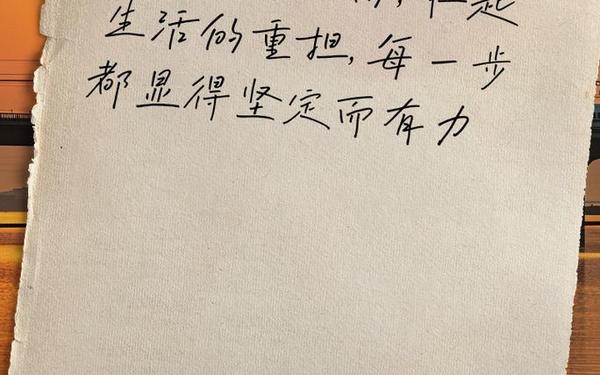 ，扛起
生活的重担，每一步
都显得坚定而有力